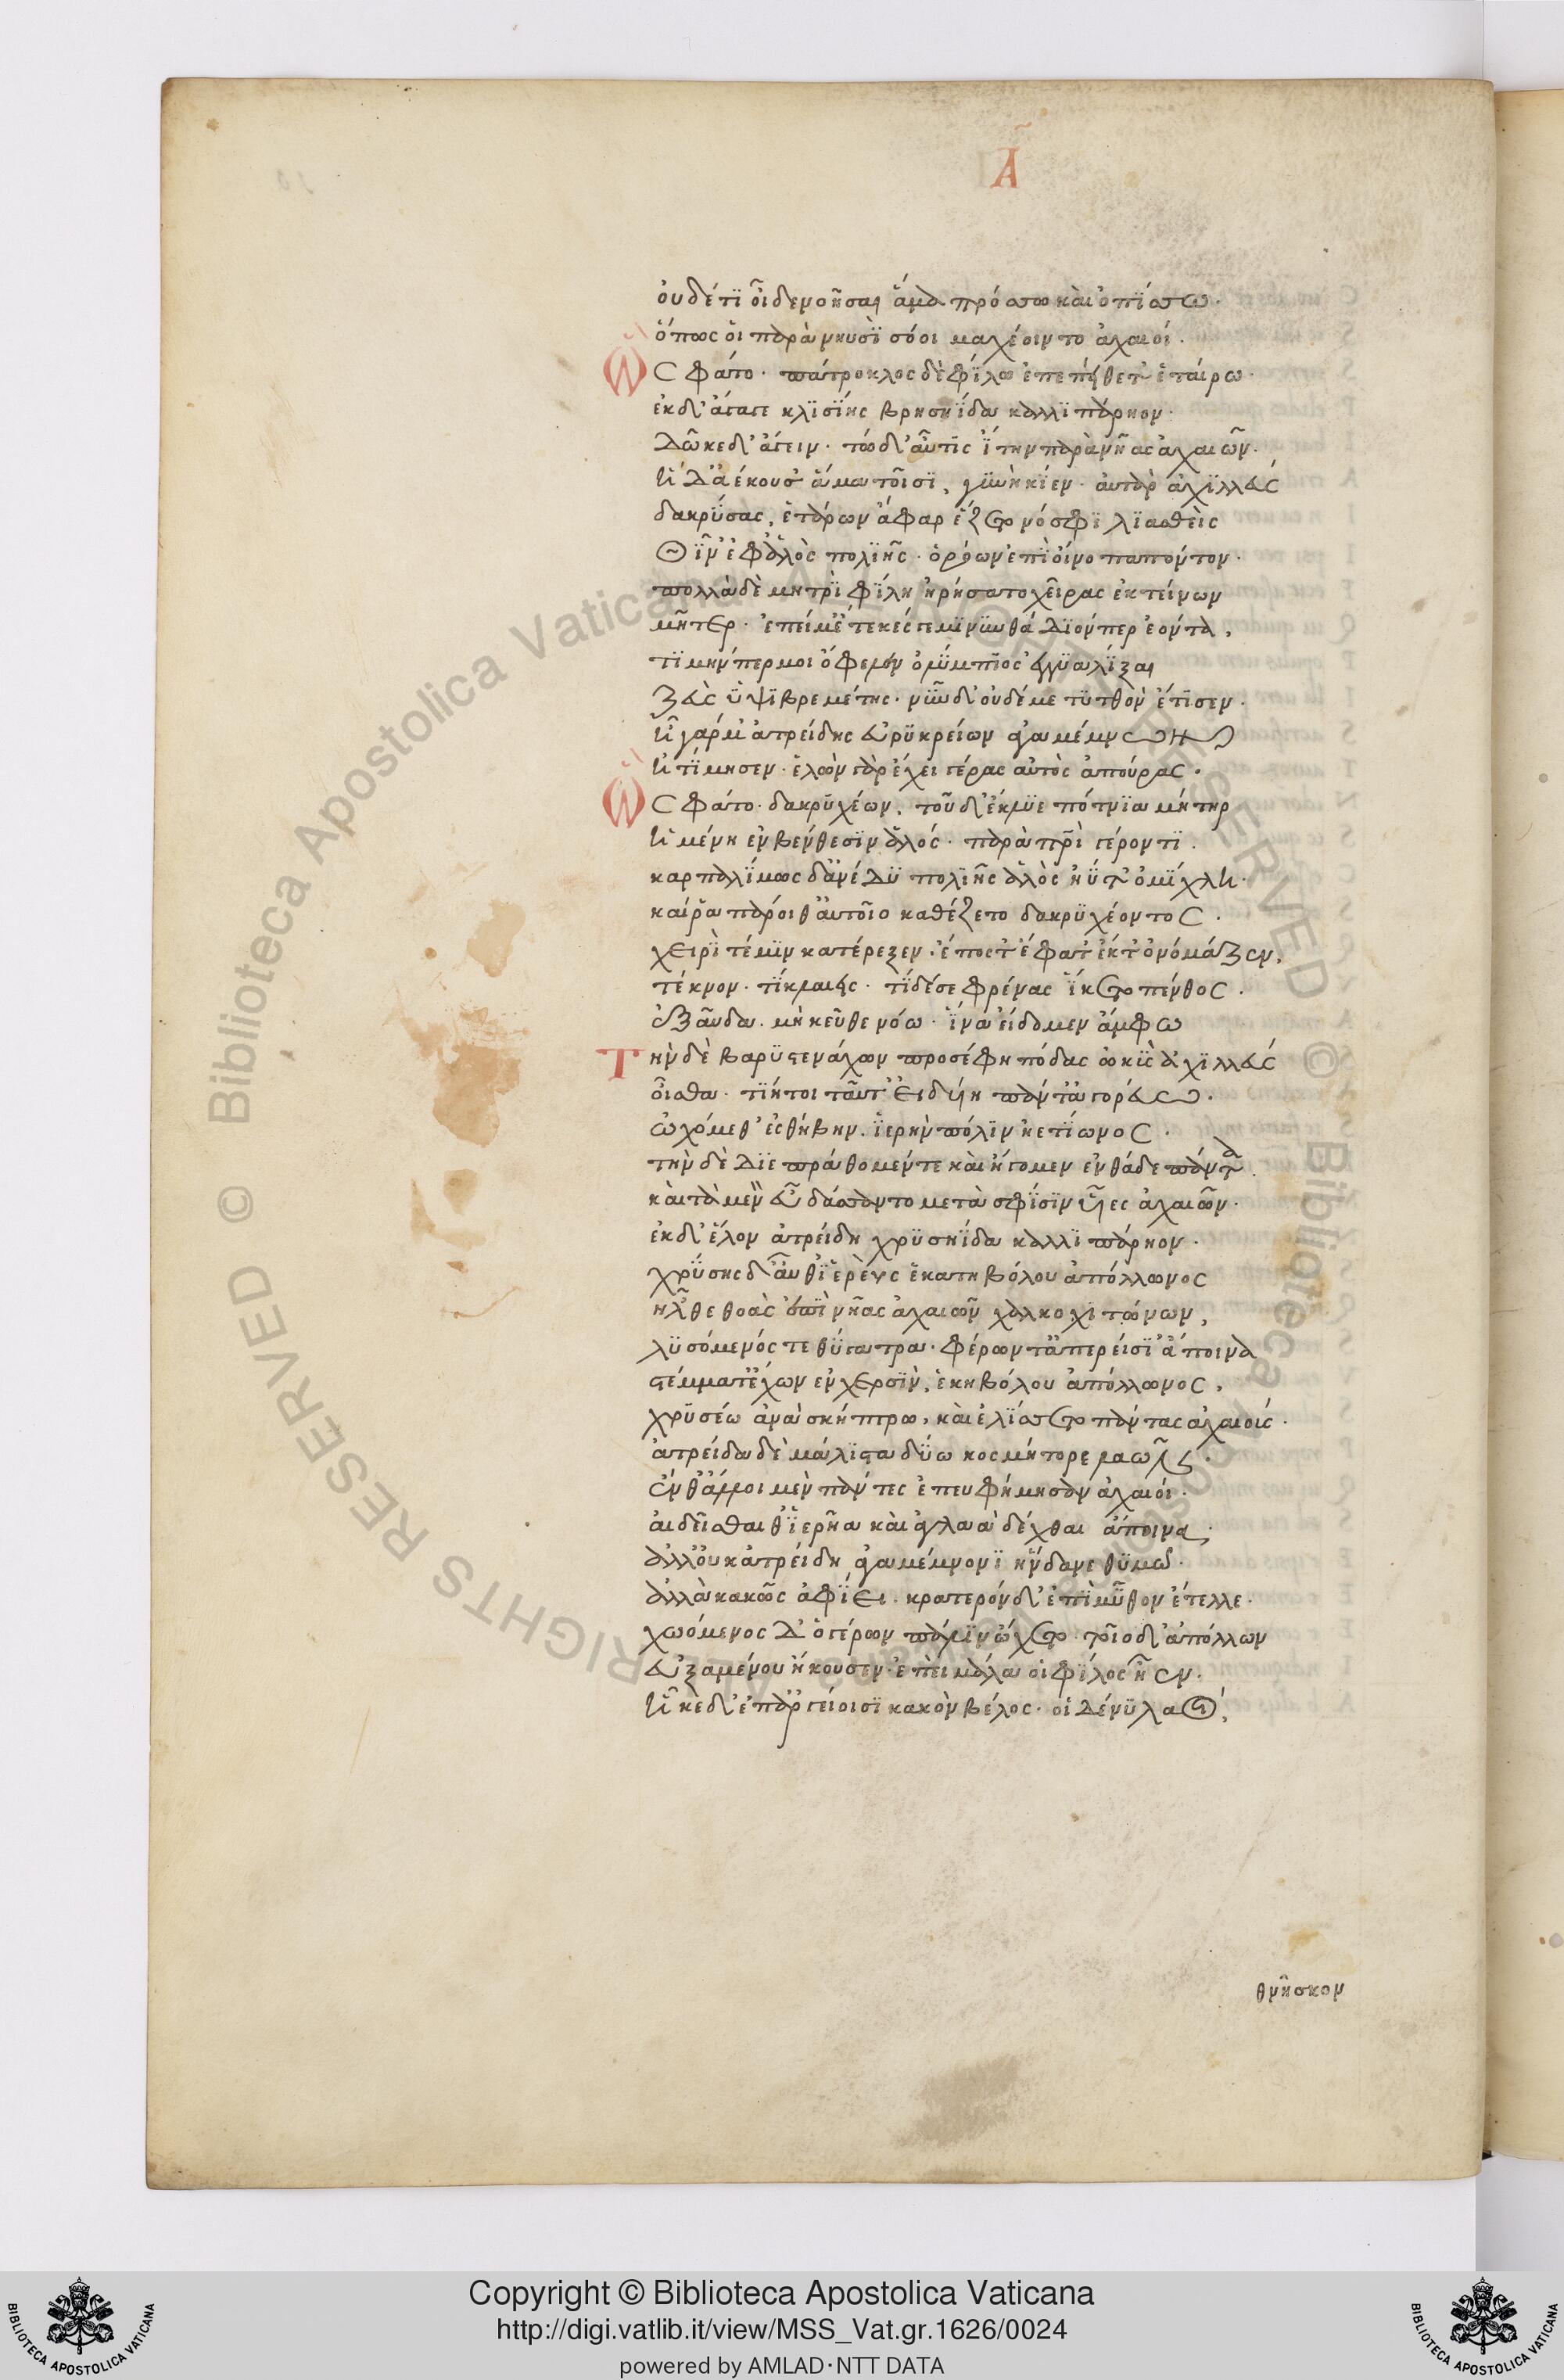 Α
οὐδέ τι οἶδε νοῆσαι ἅμα πρόσσω καὶ ὀπίσσω.
ὅππως οἱ παρὰ νηυσὶ σόοι μαχέοιντο ἀχαιοί.
Ὣς φάτο. πάτροκλος δὲ φίλω ἐπεπείθεθ' ἑταίρω.
ἐκ δ' ἄγαγε κλισίης βρησηΐδα καλλιπάρηον.
Δῶκε δ' ἄγειν. τὼ δ' αὖτις ἴτην παρὰ νῆας ἀχαιῶν.
ἡ δ' ἀέκουσ' ἅμα τοῖσι, γυνὴ κίεν. αὐτὰρ ἀχιλλεύς
δακρύσας, ἑτάρων ἄφαρ ἕζετο νόσφι λιασθεὶς
Θῖν' ἐφ' ἁλὸς πολιῆς. ὁρόων ἐπὶ οἴνοπα πόντον.
πολλὰ δὲ μητρὶ φίλη ἠρήσατο χεῖρας ἐκτείνων
μῆτερ. ἐπεί μ' ἔτεκές γε μινυνθά διόν περ ἐόντα,
τιμήν περ μοι ὄφελλεν ὀλύμπιος ἐγγυαλίξαι
Ζεὺς ὑψιβρεμέτης. νῦν δ' οὐδέ με τυτθὸν ἔτισεν.
ἦ γάρ μ' ἀτρείδης εὐρυκρείων ἀγαμέμνων
ἠτίμησεν. ἑλὼν γὰρ ἔχει γέρας αὐτὸς ἀπούρας.
Ὣς φάτο. δακρυχέων, τοῦ δ' ἔκλυε πότνια μήτηρ
ἡμένη ἐν βένθεσιν ἁλός. παρὰ πρὶ γέροντι.
καρπαλίμως δ' ἀνέδυ πολιῆς ἁλὸς ἠΰτ' ὀμίχλη.
καί ῥα πάροιθ' αὐτοῖο καθέζετο δακρυχέοντος.
χειρί τέ μιν κατέρεξεν. ἔπος τ' ἔφατ' ἔκ τ' ὀνόμαζεν,
τέκνον. τί κλαίεις. τί δέ σε φρένας ἵκετο πένθος.
ἐξαύδα. μὴ κεῦθε νόω. ἵνα εἴδομεν ἄμφω
Τὴν δὲ βαρυστενάχων προσέφη πόδας ὠκὺς ἀχιλλεύς
οἶσθα. τίη τοι ταῦτ' εἰδυίη πάντ' ἀγορεύσω.
ὠχόμεθ' ἐς θήβην. ἱερὴν πόλιν ἠετίωνος.
τὴν δὲ διεπράθομέν τε καὶ ἤγομεν ἐνθάδε πάντα.
καὶ τὰ μὲν εὖ δάσσαντο μετὰ σφίσιν υἷες ἀχαιῶν.
ἐκ δ' ἕλον ἀτρείδη χρυσηΐδα καλλιπάρηον.
χρύσης δ' αὖθ' ἱερεὺς ἑκατηβόλου ἀπόλλωνος
ἦλθε θοὰς ἐπὶ νῆας ἀχαιῶν χαλκοχιτώνων,
λυσόμενός τε θύγατρα. φέρων τ' ἀπερείσι' ἄποινα
στέμματ' ἔχων ἐν χερσὶν, ἑκηβόλου ἀπόλλωνος,
χρυσέω ἀνὰ σκήπτρω, καὶ ἐλίσσετο πάντας ἀχαιούς.
ἀτρείδα δὲ μάλιστα δύω κοσμήτορε λαῶν.
ἔνθ' ἄλλοι μὲν πάντες ἐπευφήμησαν ἀχαιοί.
αἰδεῖσθαι θ' ἱερῆα καὶ ἀγλαὰ δέχθαι ἄποινα.
ἀλλ' οὐκ ἀτρείδη ἀγαμέμνονι ἥνδανε θυμῶ.
ἀλλὰ κακῶς ἀφίει. κρατερόν δ' ἐπὶ μῦθον ἔτελλε.
χωόμενος δ' ὁ γέρων πάλιν ὤχετο. τοῖο δ' ἀπόλλων
εὐξαμένου ἤκουσεν. ἐπεὶ μάλα οἱ φίλος ἦεν.
ἧκε δ' ἐπ' ἀργείοισι κακὸν βέλος. οἱ δέ νυ λαοί,
θνῆσκον
© Biblioteca Apostolica Vaticana ALL RIGHTS RESERVED
Copyright © Biblioteca Apostolica Vaticana
http://digi.vatlib.it/view/MSS_Vat.gr.1626/0024
powered by AMLAD·NTT DATA
BIBLIOTECA APOSTOLICA VATICANA
BIBLIOTECA APOSTOLICA VATICANA